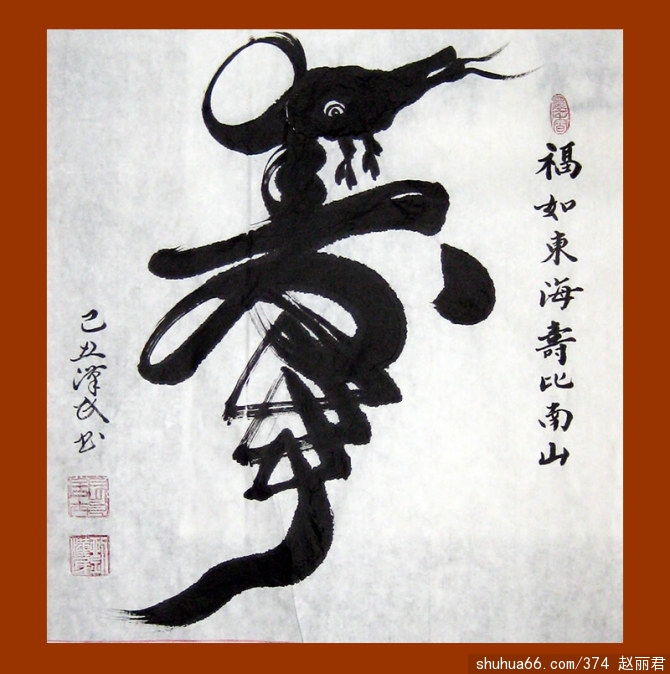 壽
福如東海壽比南山
己丑民书
shuhua66.com/374 赵丽君